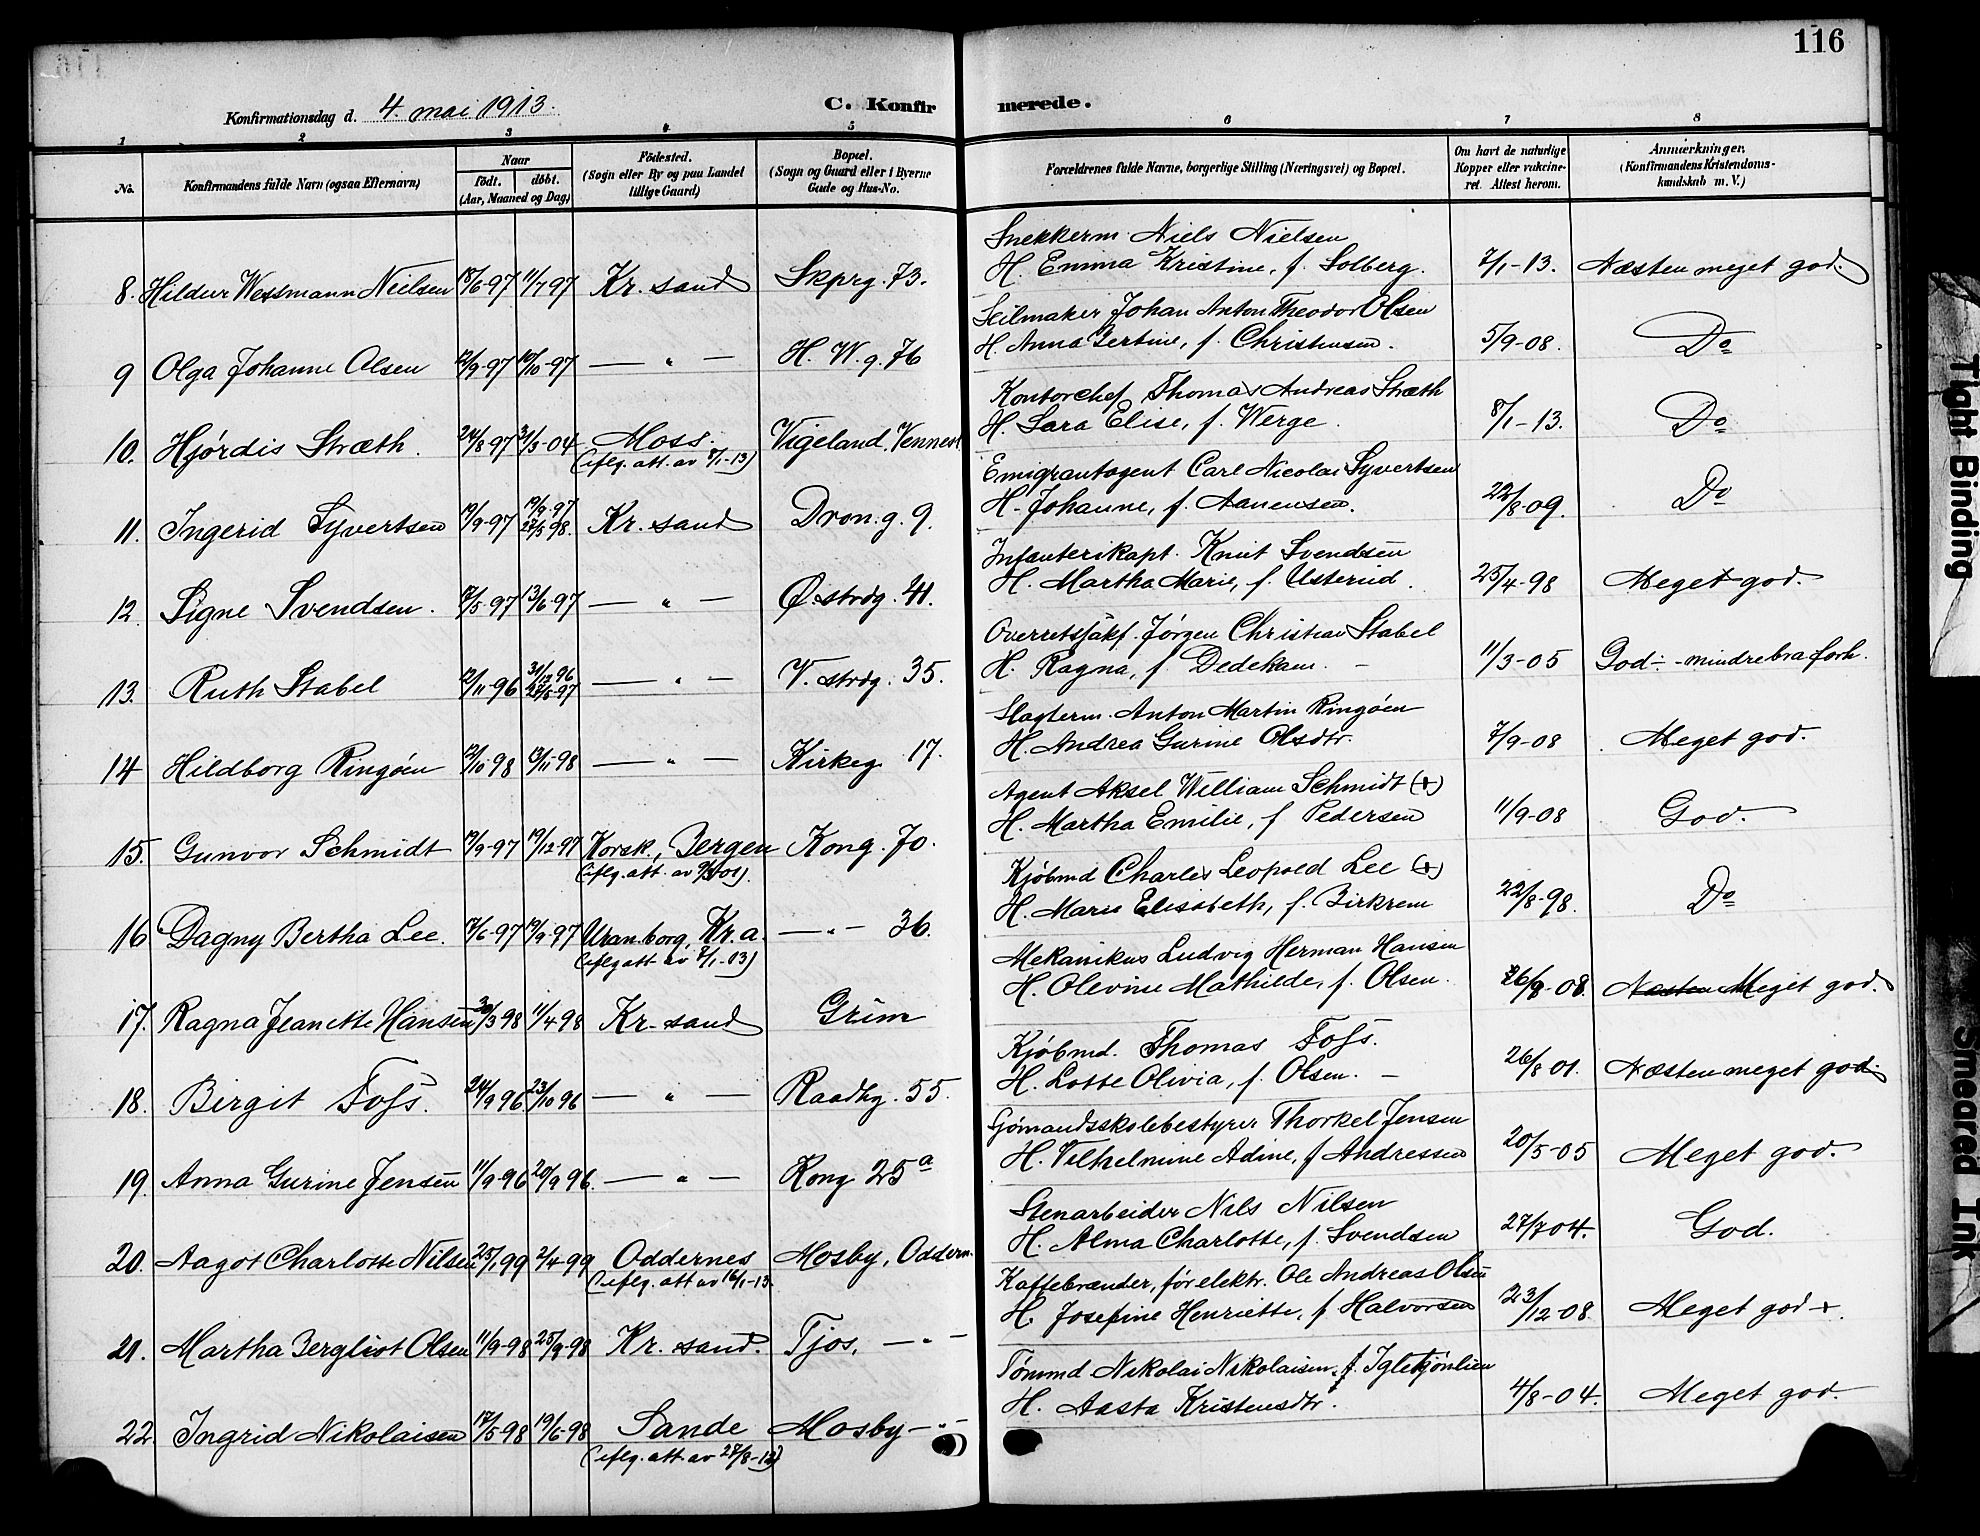 116
Konfirmationsdag d. 4. mai 1913.
C. Konfirmerede.
1 2 3 4 5 6 7 8
No.
Konfirmandens fulde Navn (ogsaa Efternavn)
Naar
födt. döbt.
(Aar, Maaned og Dag)
Födested.
(Sogn eller By og paa Landet
tillige Gaard)
Bopæl.
(Sogn og Gaard eller i Byerne
Gade og Hus-No.
Forældrenes fulde Navne, borgerlige Stilling (Næringsvei) og Bopæl.
Om havt de naturlige
Kopper eller vakcine-
ret. Attest herom.
Anmærkninger.
(Konfirmandens Kristendoms-
kundskab m. V.)
Snekkerm. Niels Nielsen
8. Hildur Wessmann Nielsen 18/6-97 11/7 97 Kr. sand Skprg. 73. H. Emma Kristine, f. Solberg. 7/1-13. Næsten meget god.
Seilmaker Johan Anton Theodor Olsen
9 Olga Johanne Olsen 12/9-97 10/10-97 — " — H. W. g. 76 H. Anna Gertine, f. Christensen. 5/9-08. Do
Kontorchef Thomas Andreas Stræth
10. Hjørdis Stræth. 24/8-97 31/3-04 Moss. Vigeland, Vennesl H. Sara Elise, f. Werge. 8/1-13. Do
(iflg. att. av 8/1-13)
Emigrantagent Carl Nicolai Syvertsen
11. Ingerid Syvertsen 19/9-97 19/9-97 27/3 98. Kr. sand Dron. g. 9. H. Johanne, f. Aanensen. 22/8-09. Do
Infanterikapt. Knut Svendsen
12 Signe Svendsen. 17/5-97 13/6-97 — " — Ø. strdg. 41. H. Martha Marie, f. Usterud. 25/4-98 Meget god.
Overretssakf. Jörgen Christian Stabel
13. Ruth Stabel 12/11-96 31/12 96 — " — V. strdg. 35. H. Ragna, f. Dedekam. — 11/3-05 God ÷ - mindre bra forh.
Slagterm. Anton Martin Ringöen
14 Hildborg Ringöen 12/10 98 13/11-98 — " — Kirkeg 17. H. Andrea Gurine Olsdtr. 7/9-08 Meget god.
Agent Aksel William Schmidt (+)
15. Gunvor Schmidt 17/9-97 19/12-97 Korsk., Bergen Kong. 70. H. Martha Emilie, f. Pedersen 11/9-08 God.
(iflg. att. av
Kjöbmd Charles Leopold Lee (+)
16 Dagny Bertha Lee. 17/6-97 19/9-97 Uranborg, Kr.a. — " — 36. H. Marie Elisabeth, f. Birkrem 22/8-98. Do
(iflg att av 7/1-13)
Mekanikus Ludvig Herman Hansen
17. Ragna Jeanette Hansen 30/3 98 11/4 98 Kr. sand Grim H. Olevine Mathilde, f. Olsen. 26/8-08. Næsten Meget god.
Kjöbmd. Thomas Foss.
18. Birgit Foss. 24/9 96 23/10 96 — " — Raadhg. 55. H. Lotte Olivia, f. Olsen. — 26/8 01. Næsten meget god.
Sjömandsskolebestyrer Thorkel Jensen
19. Anna Gurine Jensen 11/9-96 20/9 96. — " — Kong 25a H. Vilhelmine Adine, f Andressen 20/5-05 Meget god.
Stenarbeider Nils Nilsen
20. Aagot Charlotte Nilsen 25/1 99 2/4-99 Oddernes Mosby, Oddern. H. Alma Charlotte, f. Svendsen 27/7 04. God.
(iflg. att av 16/1-13.
Kaffebrænder, för elektr. Ole Andreas Olsen
21. Martha Bergliot Olsen 11/9-98 25/9-98 Kr. sand. Tjos, — " — H. Josefine Henriette, f Halvorsen 23/12-08. Meget god +.
Tömmd Nikolai Nikolaisen, f. Igletjönlien
22 Ingrid Nikolaisen 17/5-98 19/6-98 Sande Mosby — " — H. Aasta Kristensdtr. 4/8-04. Meget god.
(iflg. att. av 27/8-12)
Tight Binding
Smeared Ink